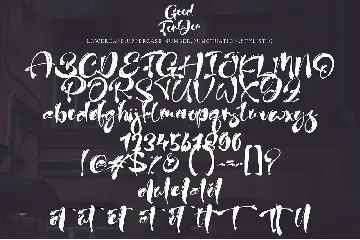 Good
ForYou
LOWERCASE,UPPERCASE,NUMBER,PUNCTUATION,STYLISTIC
ABCDEFGHIJKLMNO
PQRSTUVWXYZ
abcdefghijklmnopqrstuvwxyz
1234567890
!@#$%&()-~[]?